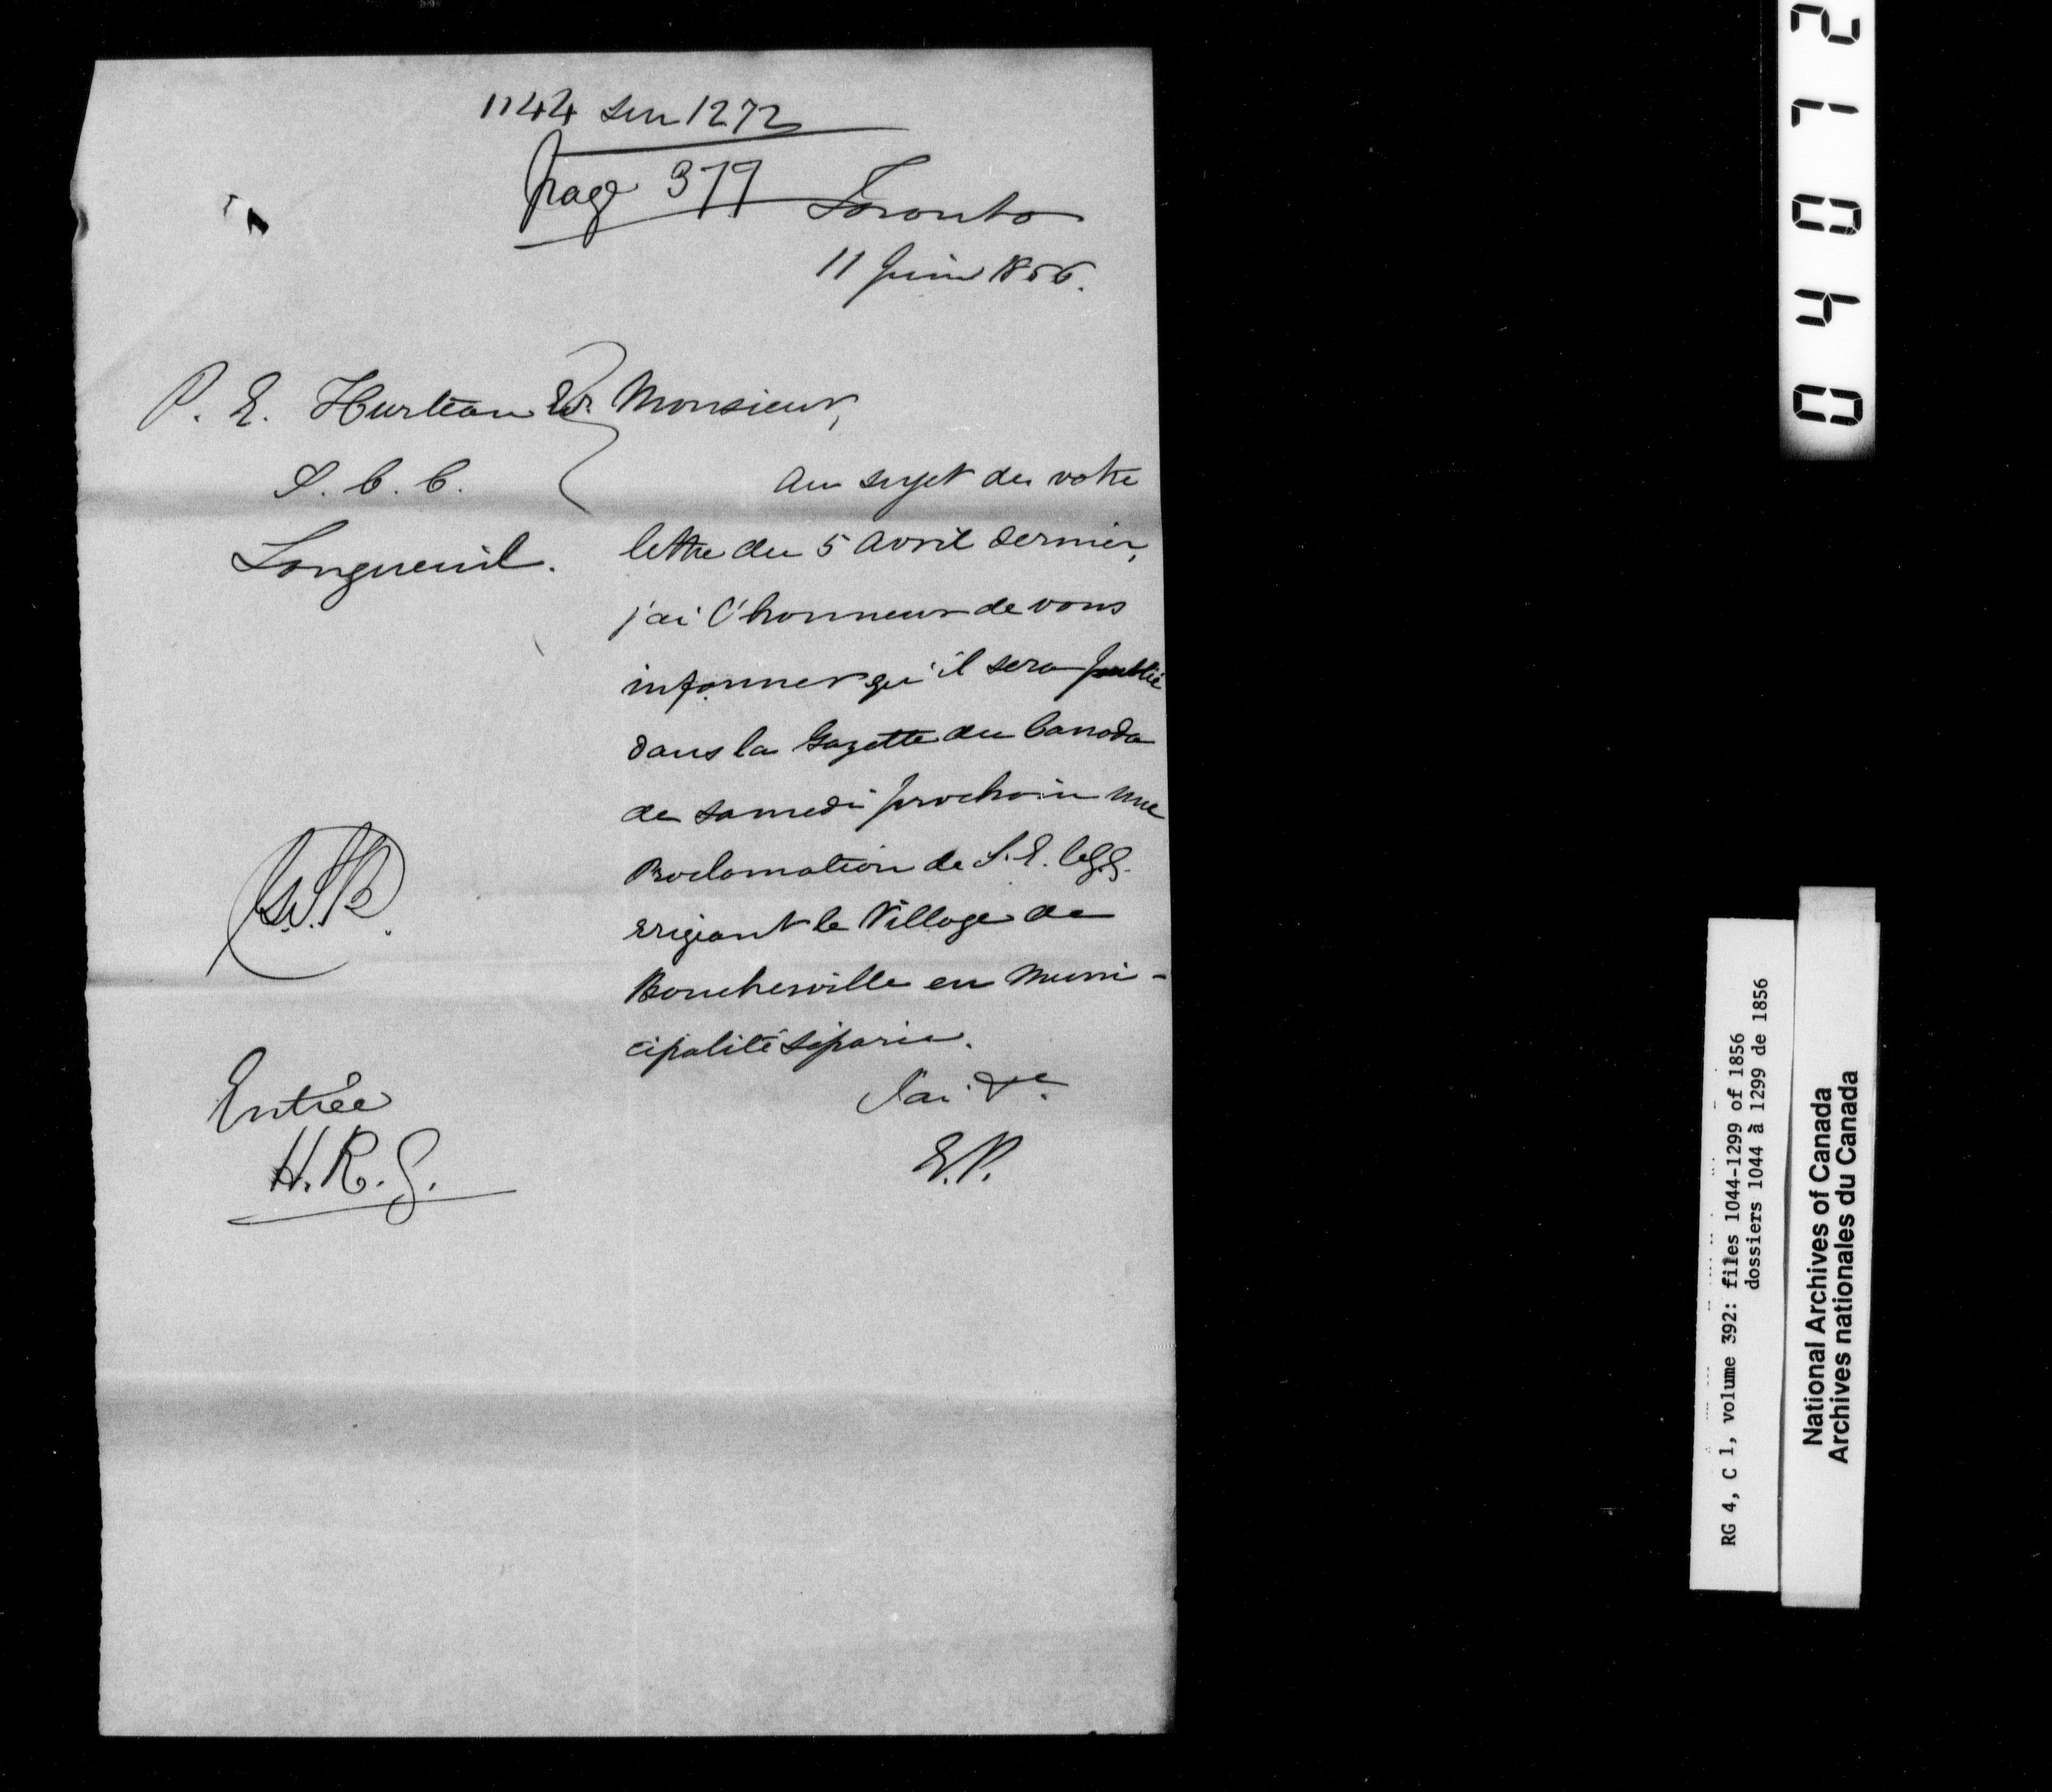 1144 sur 1272
page 377
Toronto
11 Juin 1856.
P. E. Hurteau Er.
S. C. C.
Longueuil.
Monsieur,
Au sujet de votre
lettre du 5 Avril dernier,
j'ai l'honneur de vous
informer qu'il sera publié
dans la Gazette du Canada
de samedi prochain une
Proclamation de S. E. le G. G.
érigeant le Village de
Boucherville en Muni-
cipalité séparée.
J'ai &c.
E. P.
Entrée
H. R. G.
0 4 0 1 2
RG 4, C 1, volume 392: files 1044-1299 of 1856
dossiers 1044 à 1299 de 1856
National Archives of Canada
Archives nationales du Canada